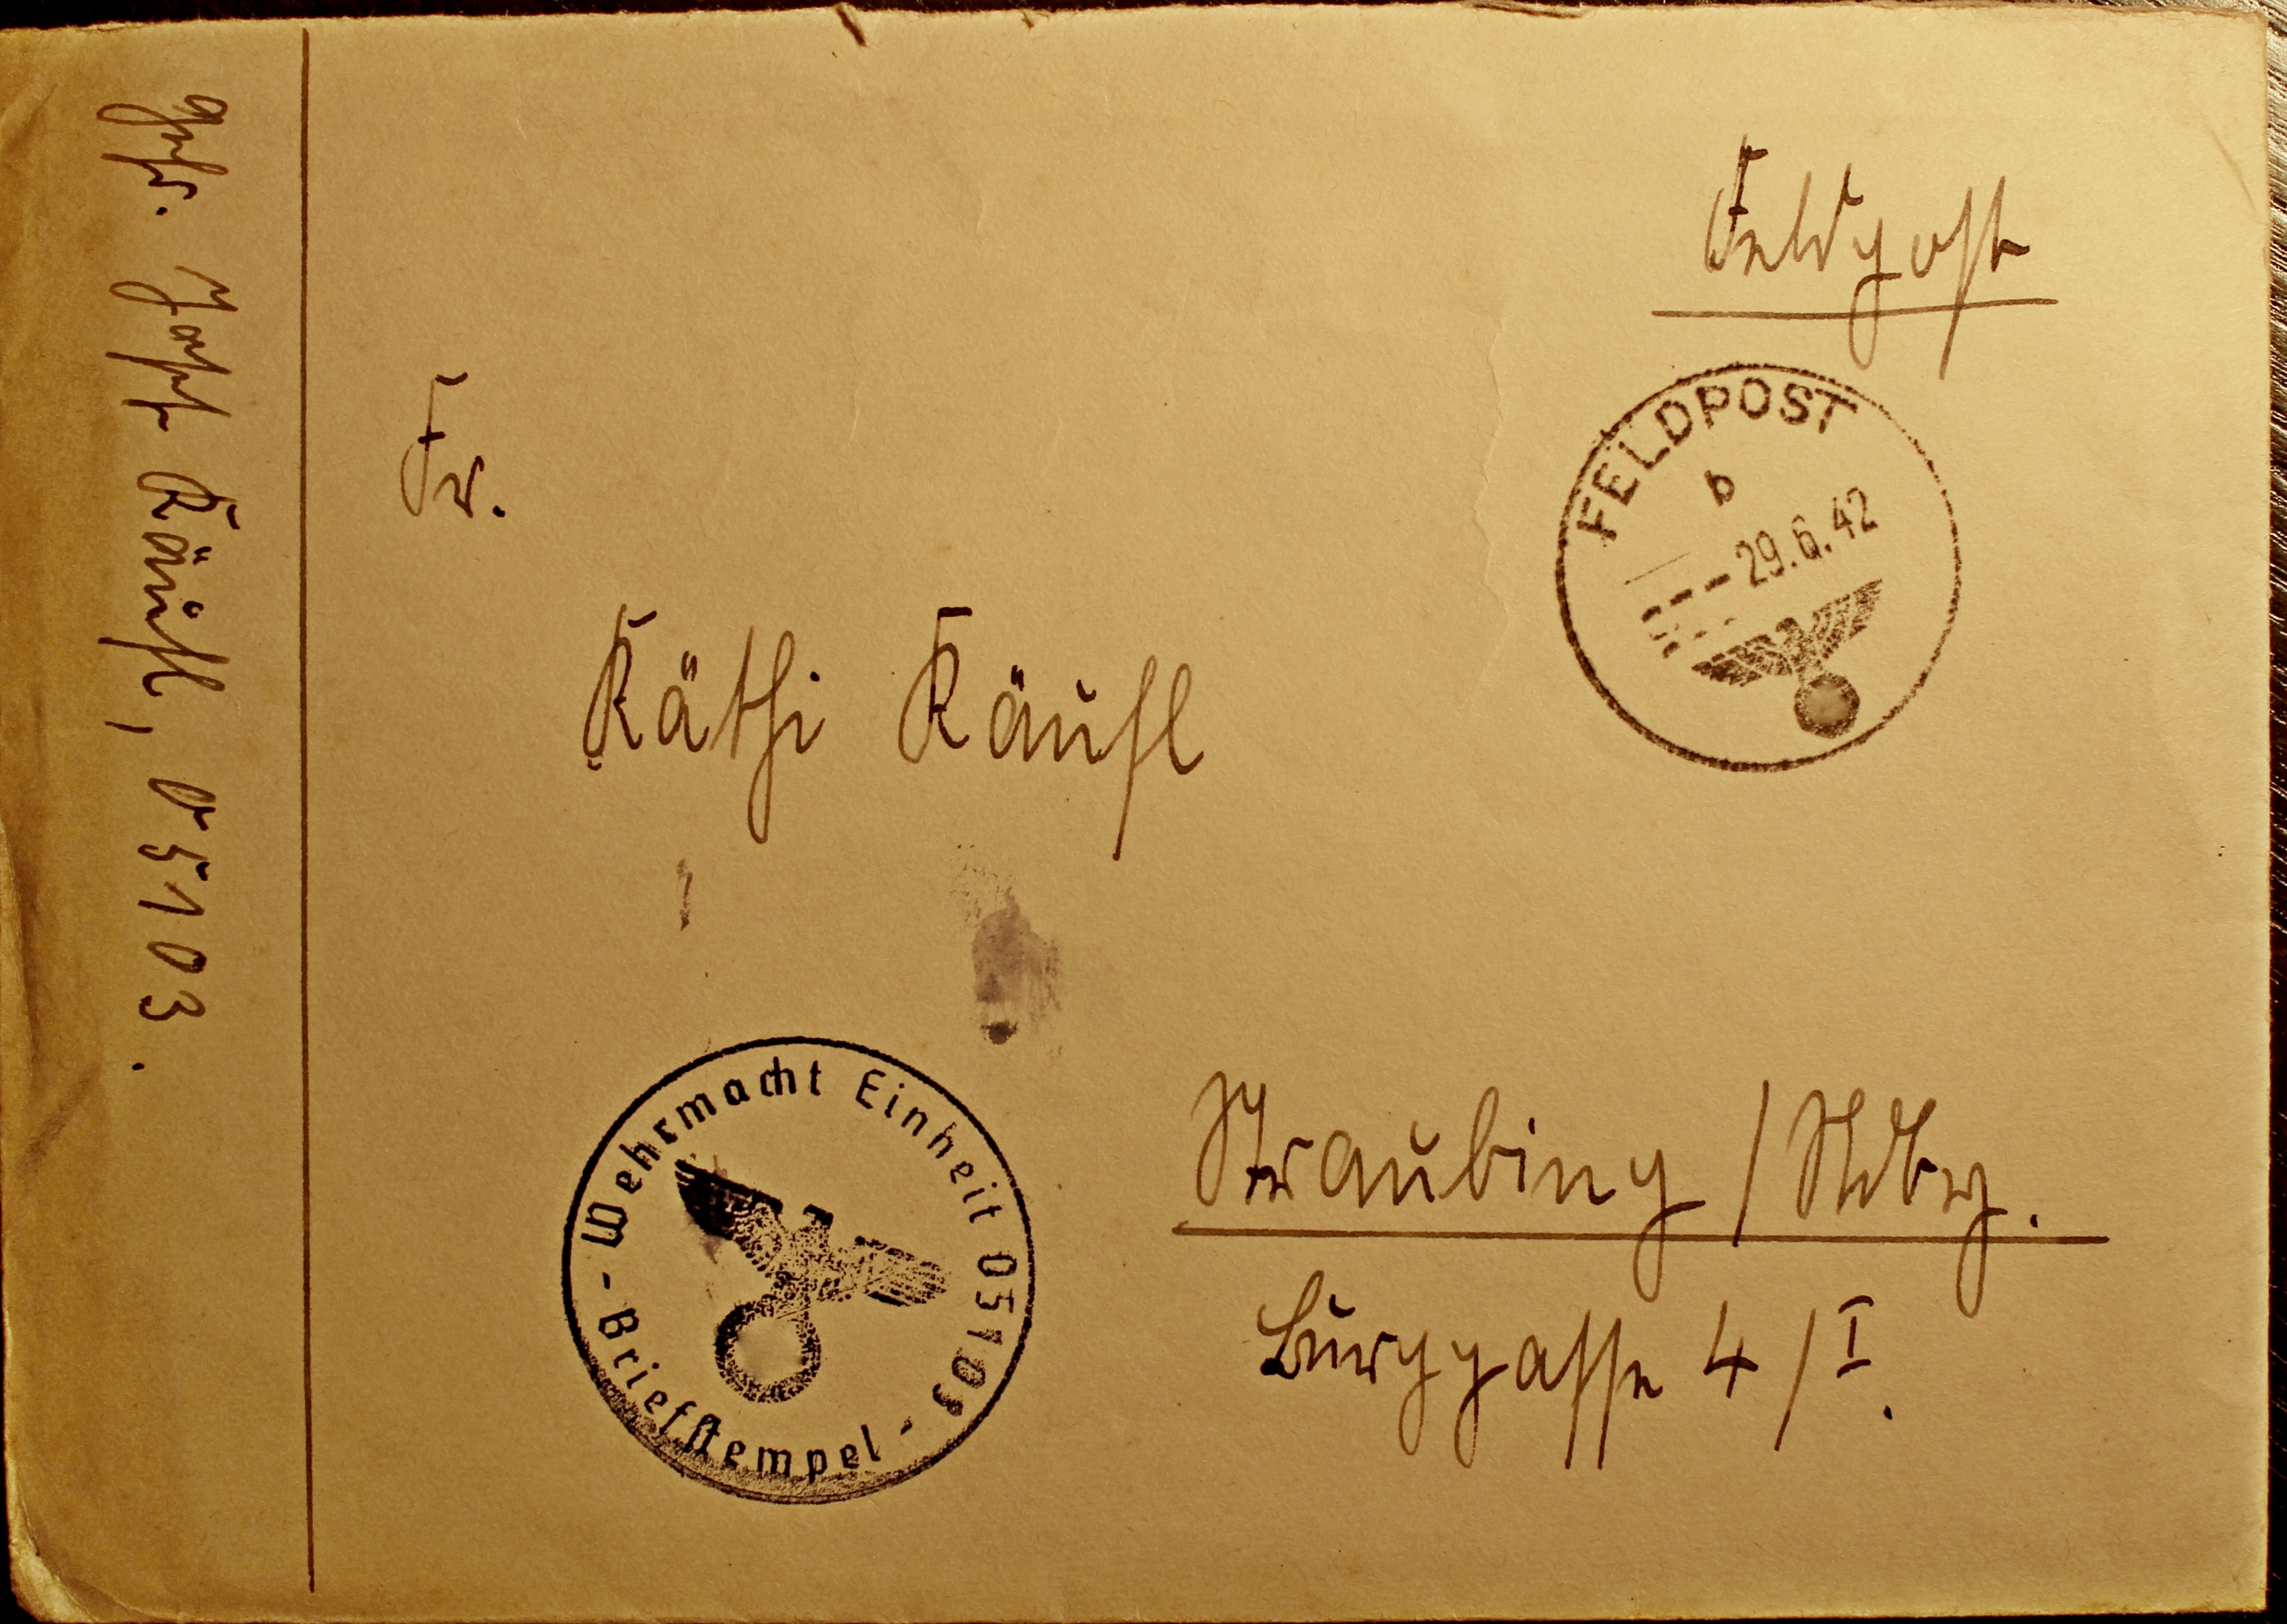 Feldpost
FELDPOST
b
29.6.42
Fr.
Käthi Käufl
Straubing / Ndby.
Burggasse 4 / I.
Gefr. Josef Käufl, 05103.
- Wehrmacht Einheit 05103 -
Briefstempel